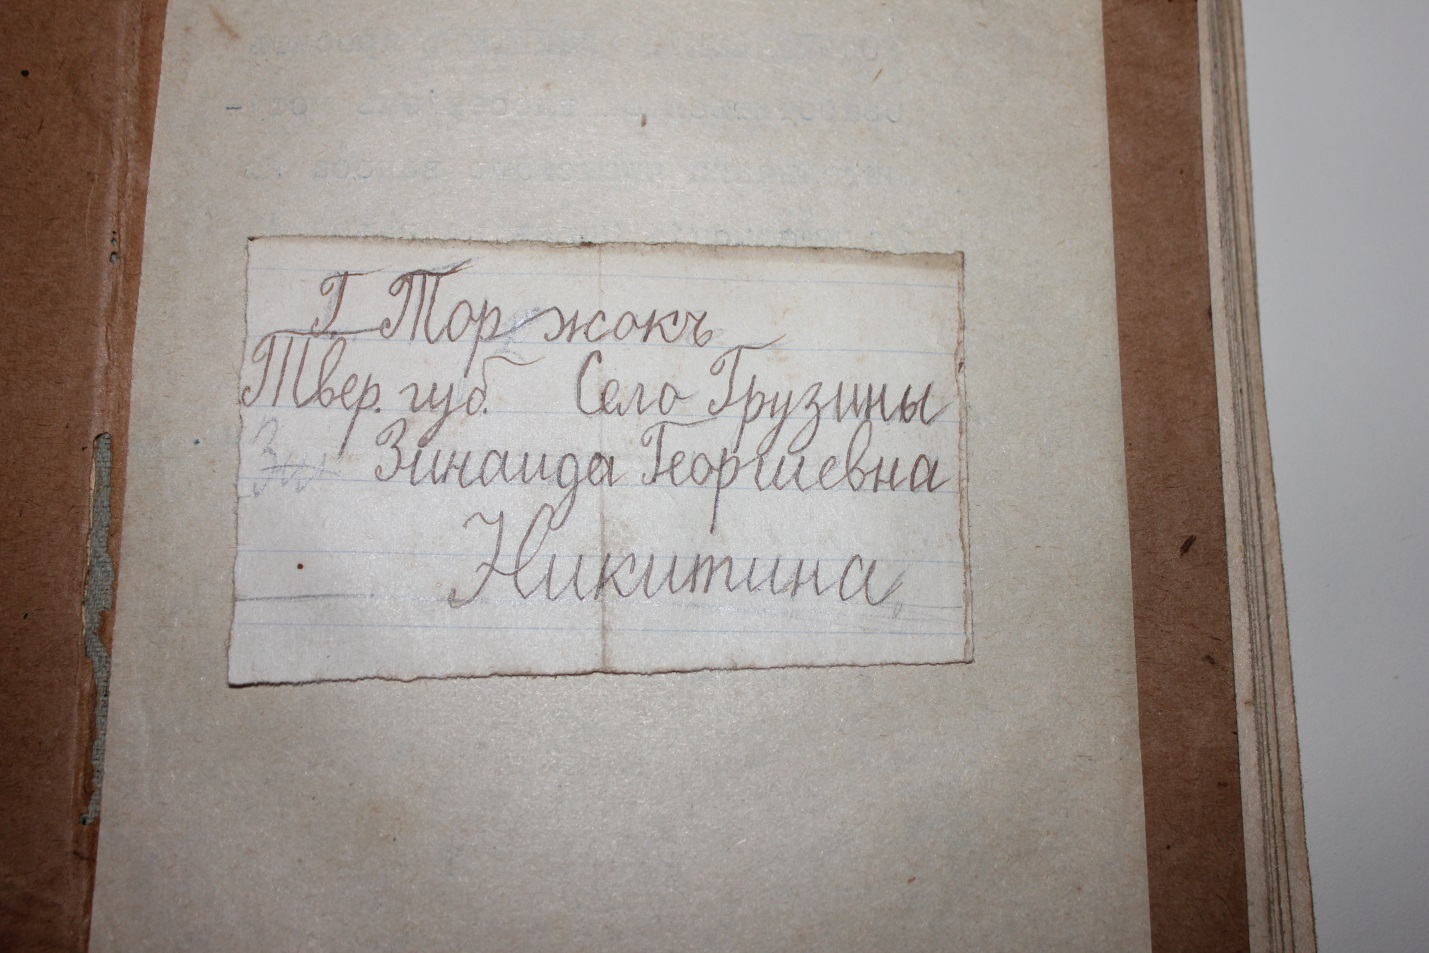 Г. Торжокъ
Твер. губ. Село Грузины
Зинаида Георгиевна
Никитина